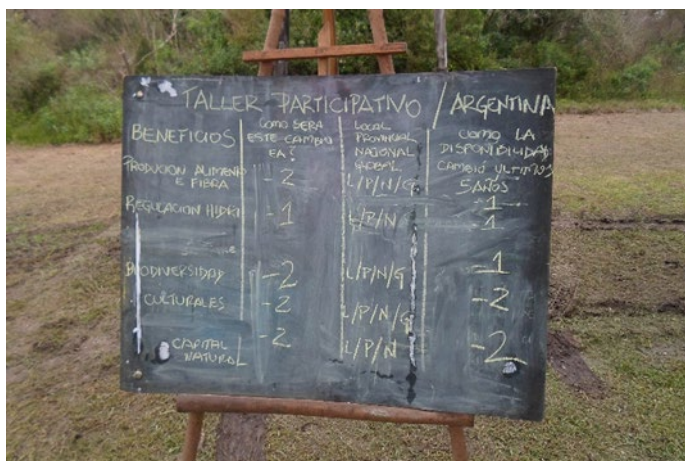 TALLER PARTICIPATIVO / ARGENTINA
BENEFICIOS
COMO SERA
ESTE CAMBIO
EA?
LOCAL
PROVINCIAL
NACIONAL
GLOBAL
COMO LA
DISPONIBILIDAD
CAMBIÓ ULTIMOS
5 AÑOS
PRODUCION ALIMENTO
E FIBRA
-2
L/P/N/G
-1
REGULACION HIDRI
-1
L/P/N
-1
BIODIVERSIDAD
-2
L/P/N/G
-1
CULTURALES
-2
L/P/N/G
-2
CAPITAL
NATURAL
-2
L/P/N
-2